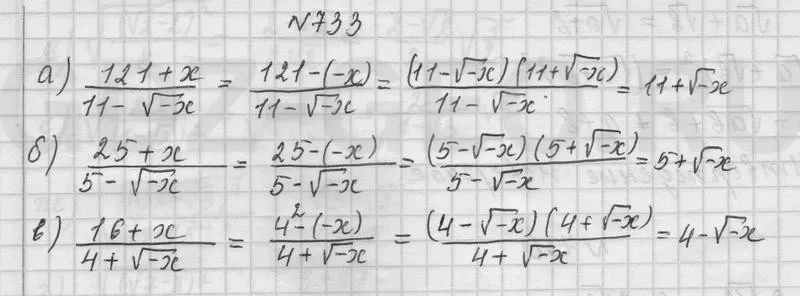 №733
а) (121+x)/(11-√-x) = (121-(-x))/(11-√-x) = ((11-√-x)(11+√-x))/(11-√-x) = 11+√-x
б) (25+x)/(5-√-x) = (25-(-x))/(5-√-x) = ((5-√-x)(5+√-x))/(5-√-x) = 5+√-x
в) (16+x)/(4+√-x) = (4²-(-x))/(4+√-x) = ((4-√-x)(4+√-x))/(4+√-x) = 4-√-x